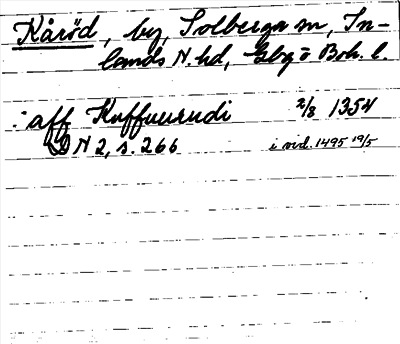 Kåröd, by, Solberga sn, In-
lands N. hd, Gbg o Boh. l.
: aff Kaffuurudi 2/8 1354
DN 2, s. 266 i vid. 1495 19/5